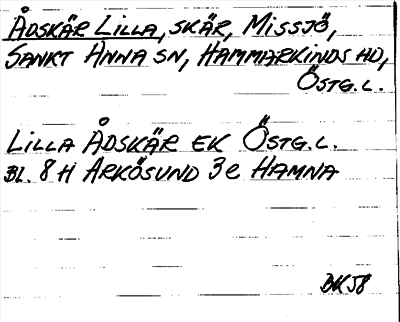 ÅDSKÄR LILLA, SKÄR, MISSJÖ,
SANKT ANNA SN, HAMMARKINDS HD,
ÖSTG.L.
LILLA ÅDSKÄR EK ÖSTG.L.
BL. 8H ARKÖSUND 3e HAMNA
BK58